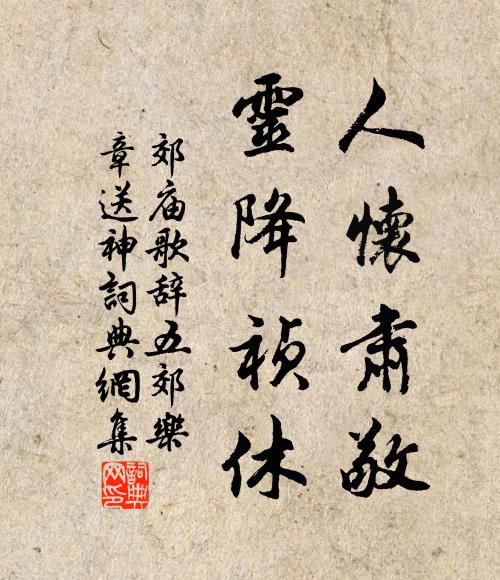 人懷肅敬
靈降禎休
郊庙歌辞五郊樂
章送神詞典網集
詞典网印